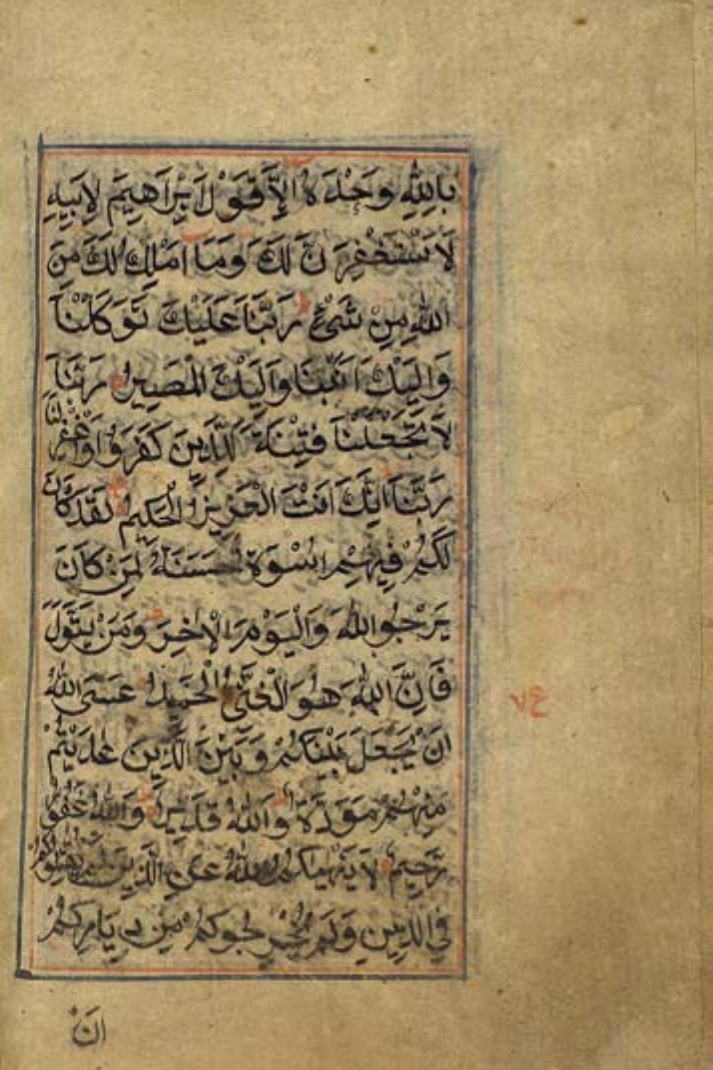 بِاللهِ وَحْدَهُ اِلَّا قَوْلَ اِبْرَاهِيمَ لِاَبِيهِ
لَاَسْتَغْفِرَنَّ لَكَ وَمَا اَمْلِكُ لَكَ مِنَ
اللهِ مِنْ شَيْءٍ رَبَّنَا عَلَيْكَ تَوَكَّلْنَا
وَاِلَيْكَ اَنَبْنَا وَاِلَيْكَ الْمَصِيرُ رَبَّنَا
لَا تَجْعَلْنَا فِتْنَةً لِلَّذِينَ كَفَرُوا وَاغْفِرْ لَنَا
رَبَّنَا اِنَّكَ اَنْتَ الْعَزِيزُ الْحَكِيمُ لَقَدْ كَانَ
لَكُمْ فِيهِمْ اُسْوَةٌ حَسَنَةٌ لِمَنْ كَانَ
يَرْجُوا اللهَ وَالْيَوْمَ الْاٰخِرَ وَمَنْ يَتَوَلَّ
فَاِنَّ اللهَ هُوَ الْغَنِيُّ الْحَمِيدُ عَسَى اللهُ
اَنْ يَجْعَلَ بَيْنَكُمْ وَبَيْنَ الَّذِينَ عَادَيْتُمْ
مِنْهُمْ مَوَدَّةً وَاللهُ قَدِيرٌ وَاللهُ غَفُورٌ
رَحِيمٌ لَا يَنْهٰيكُمُ اللهُ عَنِ الَّذِينَ لَمْ يُقَاتِلُوكُمْ
فِي الدِّينِ وَلَمْ يُخْرِجُوكُمْ مِنْ دِيَارِكُمْ
اَنْ